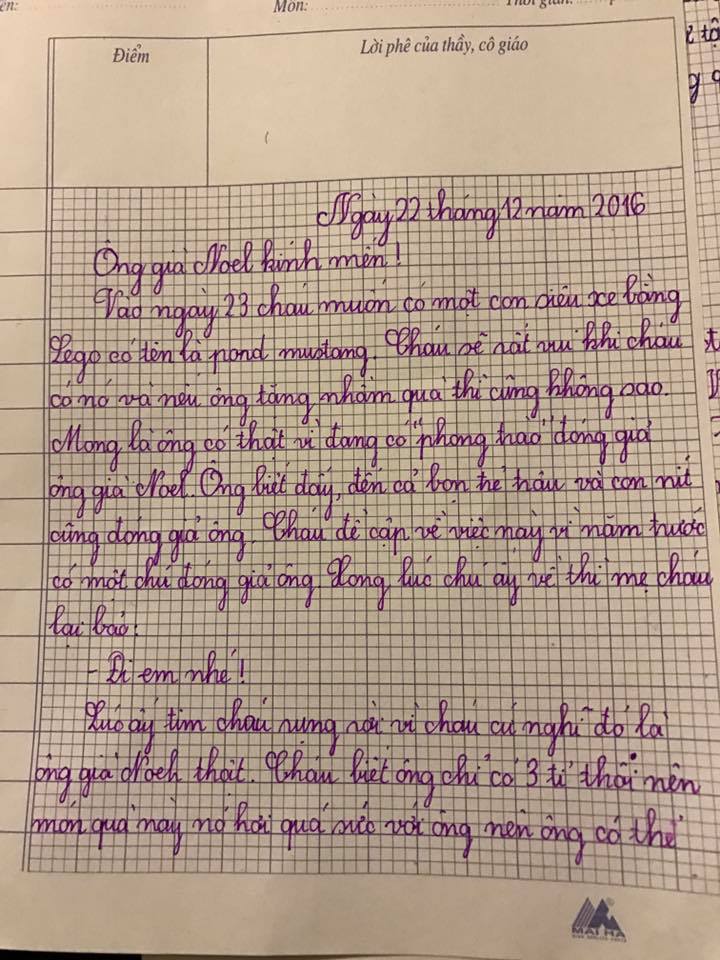 ên:
Môn:
Thời gian:
Điểm
Lời phê của thầy, cô giáo
Ngày 22 tháng 12 năm 2016
Ông già Noel kính mến!
Vào ngày 23 cháu muốn có một con siêu xe bằng
Lego có tên là pond mustang. Cháu sẽ rất vui khi cháu
có nó và nếu ông tặng nhầm quà thì cũng không sao.
Mong là ông có thật vì đang có "phong trào" đóng giả
ông già Noel. Ông biết đấy, đến cả bọn trẻ trâu và con nít
cũng đóng giả ông. Cháu đề cập về việc này vì năm trước
có một chú đóng giả ông. Xong lúc chú ấy về thì mẹ cháu
lại bảo:
- Đi em nhé!
Lúc ấy tim cháu rụng rời vì cháu cứ nghĩ đó là
ông già Noel thật. Cháu biết ông chỉ có 3 tỉ thôi nên
món quà này nó hơi quá sức với ông nên ông có thể
MAI HA